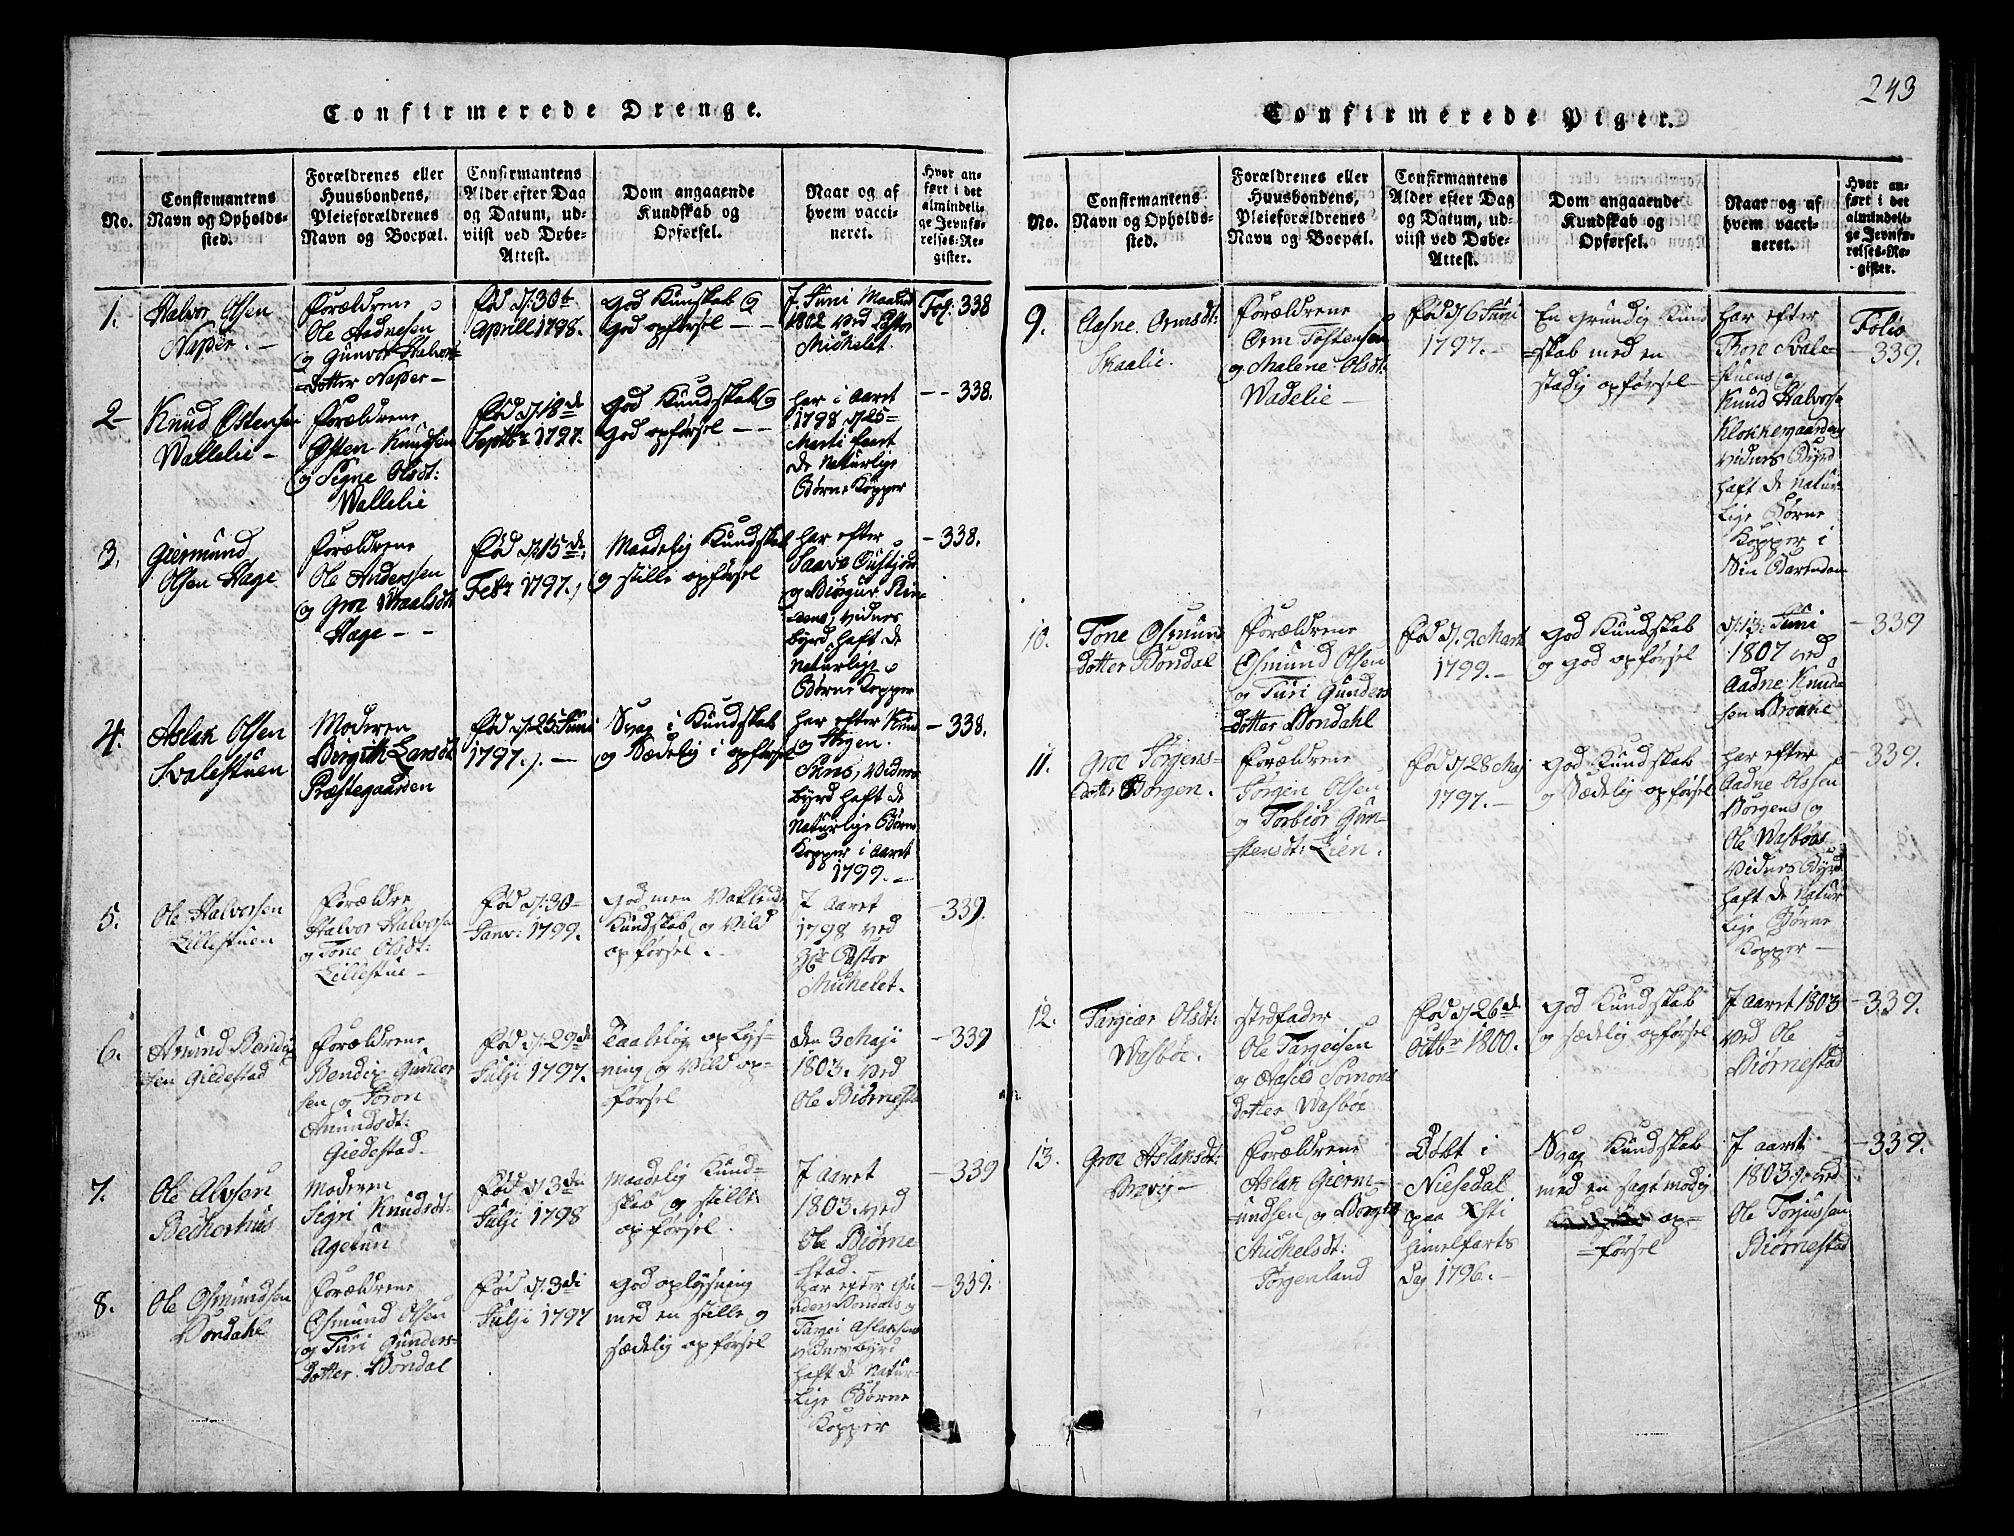 243
Confirmerede Drenge.
No.
Confirmantens
Navn og Opholds-
sted.
Forældrenes eller
Huusbondens,
Pleieforældrenes
Navn og Boepæl.
Confirmantens
Alder efter Dag
og Datum, ud-
viist ved Døbe-
Attest.
Dom angaaende
Kundskab og
Opførsel.
Naar og af
hvem vacci-
neret.
Hvor an-
ført i det
almindeli-
ge Jevnfø-
relses-Re-
gister.
1.
Halvor Olsen
Naper. -
Forældrene
Ole Aadnesen
og Gunvor Halvors-
=dotter Naper -
Fød d. 30te
Aprill 1798.
God Kundskab og
God opførsel - -
J Juni Maaned
1802 ved Pastor
Michelet.
Fol: 338
2
Knud Østensen
Wallelie -
Forældrene
Østen Knudsen
og Signe Olsdt:
Wallelie
Fød d. 18de
Septbr 1797.
God Kundskab og
God opførsel - -
har i Aaret
1798 d. 25=
Marti havt
de Naturlige
Børne Kopper
- - 338.
3.
Giermund
Olsen Hage
Forældrene
Ole Anderssen
og Groe Draalsdt
Hage - -
Fød d. 15de
Febr 1797.
Maadelig Kundskab
og stille opførsel
har efter
Saave
og
vidnes
byrd, haft de
Naturlige
Børne Kopper
- 338.
4.
Aslak Olsen
Svalestuen
Moderen
Borgith Larsdt
Præstegaarden
Fød d. 25 Juni
1797. -
Svag i Kundskab
og Sædelig i opførsel
har efter Knud
og
Vidnes
byrd haft de
Naturlige Børne
Kopper i Aaret
1799. -
- 338.
5.
Ole Halvorsen
Lillestuen
Forældre
Halvor Halvorsen
og Tone Olsdt:
Lillestue -
Fød d. 30=
Janv: 1799.
God men Vaklende
Kundskab og Vild
opførsel.
I Aaret
1798 ved
Hr Pastor
Michelet.
- 339.
6.
Amund Bendix
sen Giedestad
Forældrene
Bendix Gunder
sen og Joron
Amundsdt:
Giedestad.
Fød d. 29de
Julji 1797.
Taalelig oplys-
ning og Vild op-
førsel
den 3 Maji
1803. ved
Ole Biørnesta
- 339
7.
Ole Alvsen
Beckerhus
Moderen
Sigri Knudsdt:
Agetun
Fød d. 3di
Julji 1798
Maadelig Kund-
skab og stille
opførsel.
I Aaret
1803. ved
Ole Biørne
stad.
- 339
8.
Ole Osmundsen
Bondahl
Forældrene
Osmund Olsen
og Turi Gunders-
dotter Bondal
Fød d. 3di
Julji 1797
God oplysning
med en stille og
sædelig opførsel
har efter Gu
nders Bondals og
Targei Aslaksens
vidnesbyrd
haft de Natur-
lige Børne
Kopper
- 339.
Confirmerede Piger.
No.
Confirmantens
Navn og Opholds-
sted.
Forældrenes eller
Huusbondens,
Pleieforældrenes
Navn og Boepæl.
Confirmantens
Alder efter Dag
og Datum, ud-
viist ved Døbe-
Attest.
Dom angaaende
Kundskab og
Opførsel.
Naar og af
hvem vacci-
neret.
Hvor an-
ført i det
almindeli-
ge Jevnfø-
relses-Re-
gister.
9.
Aasne Ormsdt:
Skaalie.
Forældrene
Orm Tostensen
og Malene Olsdt:
Wadelie -
Fød d. 6 Juni
1797. -
En Grundig Kund
=skab med en
stadig opførsel -
har efter
Thore Svale-
stuens og
Knud Halvorsen
Klokkergaardens
vidnes Byrd
haft de Natur-
lige Børne
Kopper i
Sin Barndom
Folio
- 339.
10.
Tone Osmunds
dotter Bondal
Forældrene
Osmund Olsen
og Turi Gunders
dotter Bondahl
Fød d. 2 Marti
1799. -
God Kundskab
og god opførsel
d. 13. Juni
1807 ved
Aadne Knud-
sen Brokke
- 339
11.
Groe Jørgens-
dotter Borgen.
Forældrene
Jørgen Olsen
og Torbiør Gun-
=stensdt: Lien.
Fød d. 28 Maj
1797. -
God Kundskab
og Sædelig opførsel
har efter
Aadne Olssen
Borgens og
Ole Wasbøes
Vidnes Byrd
haft de Natur
lige Børne
Kopper -
- 339.
12.
Targiær Olsdt:
Wasbøe.
Stedfader
Ole Targeisen
og Aasid Somons
dotter Wasbøe
Fød d. 26de
Octbr 1800.
God Kundskab
og sædelig opførsel
J Aaret 1803
ved Ole
Biørnestad
- 339.
13.
Groe Aslaksdt:
Bravig -
Forældrene
Aslak Gierm-
=undsen og Borgit
Auchelsdt:
Jørgenland
Døbt i
Niesedal
paa Xsti
himelfarts
Dag 1796. -
Svag Kundskab
med en sagtmodig
op-
=førsel
J aaret
1803 ved
Ole Torjussen
Biørnestad
- 339.